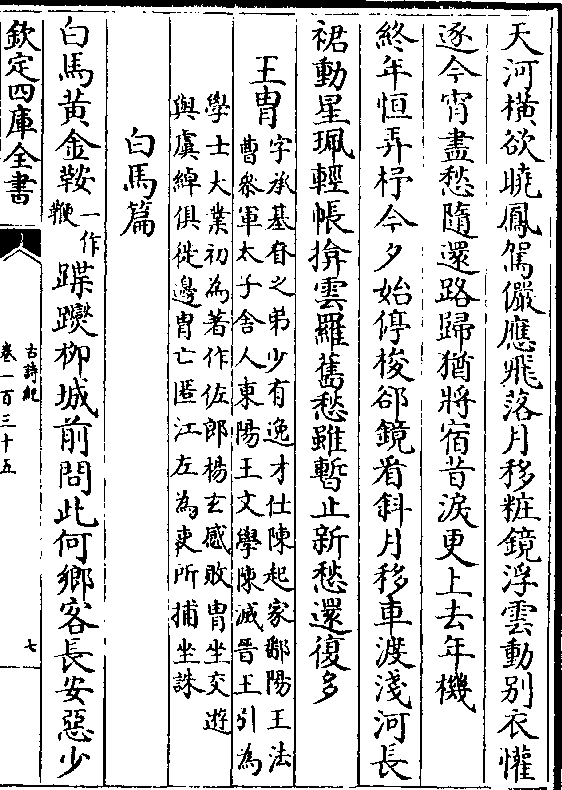 天河横欲曉鳳駕儼應飛落月移粧鏡浮雲動别衣懽
逐今宵盡愁隨還路歸猶將宿昔淚更上去年機
終年恒弄杼今夕始停梭卻鏡看斜月移車渡淺河長
裙動星珮輕帳揜雲羅舊愁雖暫止新愁還復多
王胄
字承基眘之弟少有逸才仕陳起家鄱陽王法
曹叅軍太子舍人東陽王文學陳滅晉王引為
學士大業初為著作佐郎楊玄感敗胄坐交遊
與虞綽俱徙邊胄亡匿江左為吏所捕坐誅
白馬篇
白馬黄金鞍
一作
鞭
蹀躞柳城前問此何鄉客長安惡少
欽定四庫全書
古詩紀
卷一百三十五
七